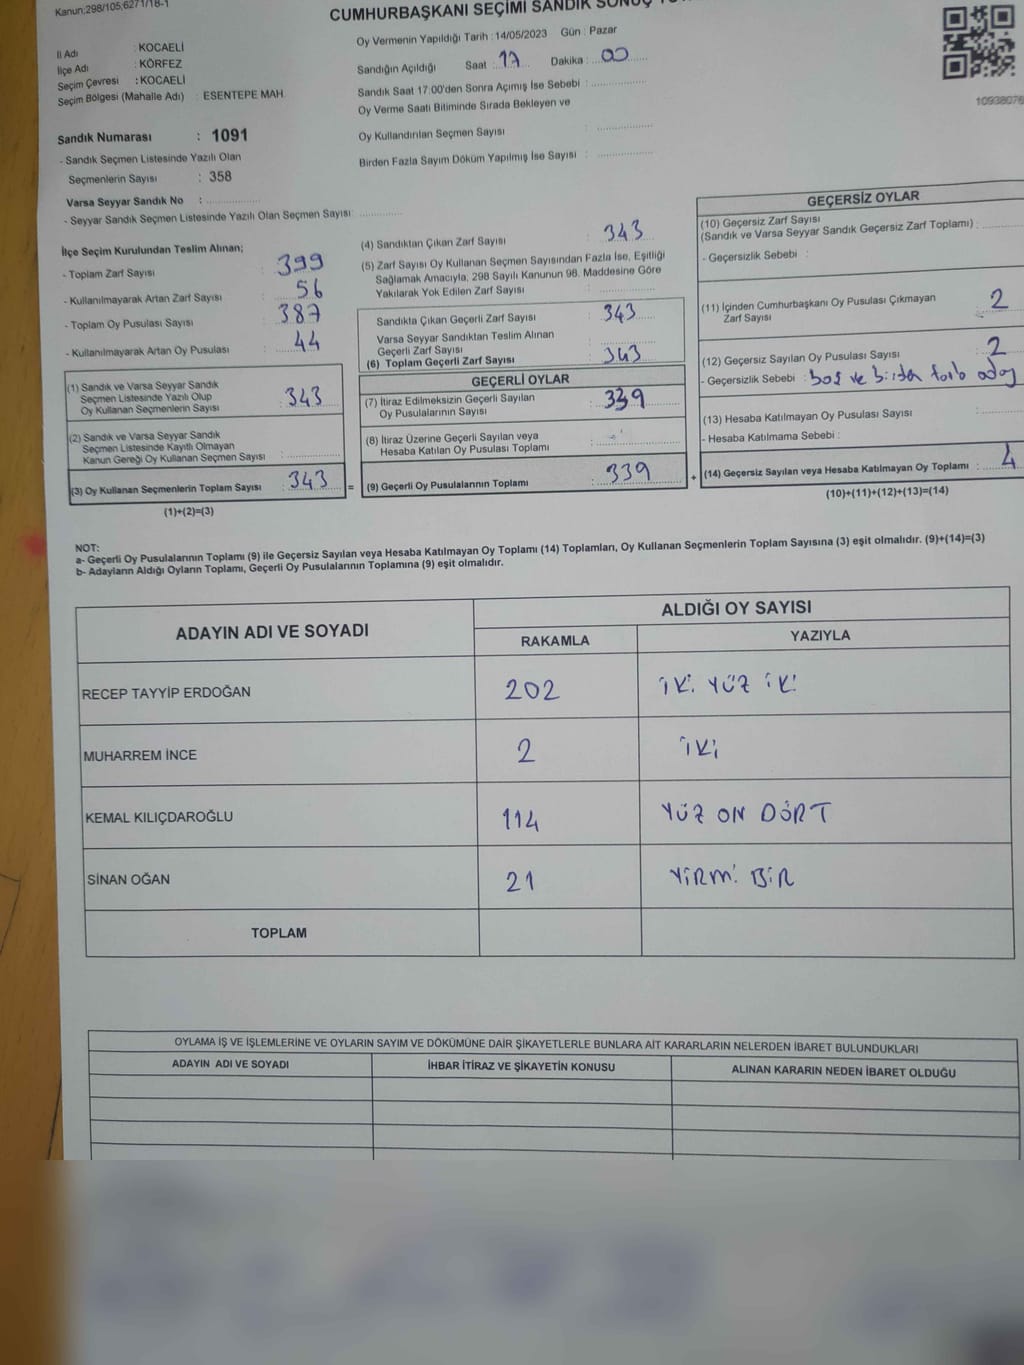 Kanun;298/105;6271/18-1
CUMHURBAŞKANI SEÇİMİ SANDIK SONUÇ
İl Adı : KOCAELİ
İlçe Adı : KÖRFEZ
Seçim Çevresi : KOCAELİ
Seçim Bölgesi (Mahalle Adı) : ESENTEPE MAH.
Sandık Numarası : 1091
- Sandık Seçmen Listesinde Yazılı Olan
Seçmenlerin Sayısı : 358
Varsa Seyyar Sandık No :
- Seyyar Sandık Seçmen Listesinde Yazılı Olan Seçmen Sayısı:
Oy Vermenin Yapıldığı Tarih : 14/05/2023 Gün : Pazar
Sandığın Açıldığı Saat : 17 Dakika : 00
Sandık Saat 17:00'den Sonra Açımış İse Sebebi :
Oy Verme Saati Bitiminde Sırada Bekleyen ve
Oy Kullandırılan Seçmen Sayısı :
Birden Fazla Sayım Döküm Yapılmış İse Sayısı :
10938076
İlçe Seçim Kurulundan Teslim Alınan;
- Toplam Zarf Sayısı : 399
- Kullanılmayarak Artan Zarf Sayısı : 56
- Toplam Oy Pusulası Sayısı : 387
- Kullanılmayarak Artan Oy Pusulası : 44
(1) Sandık ve Varsa Seyyar Sandık
Seçmen Listesinde Yazılı Olup
Oy Kullanan Seçmenlerin Sayısı : 343
(2) Sandık ve Varsa Seyyar Sandık
Seçmen Listesinde Kayıtlı Olmayan
Kanun Gereği Oy Kullanan Seçmen Sayısı :
(3) Oy Kullanan Seçmenlerin Toplam Sayısı : 343 =
(1)+(2)=(3)
(4) Sandıktan Çıkan Zarf Sayısı : 343
(5) Zarf Sayısı Oy Kullanan Seçmen Sayısından Fazla İse, Eşitliği
Sağlamak Amacıyla, 298 Sayılı Kanunun 98. Maddesine Göre
Yakılarak Yok Edilen Zarf Sayısı :
Sandıkta Çıkan Geçerli Zarf Sayısı : 343
Varsa Seyyar Sandıktan Teslim Alınan
Geçerli Zarf Sayısı :
(6) Toplam Geçerli Zarf Sayısı : 343
GEÇERLİ OYLAR
(7) İtiraz Edilmeksizin Geçerli Sayılan
Oy Pusulalarının Sayısı : 339
(8) İtiraz Üzerine Geçerli Sayılan veya
Hesaba Katılan Oy Pusulası Toplamı :
(9) Geçerli Oy Pusulalarının Toplamı : 339 +
GEÇERSİZ OYLAR
(10) Geçersiz Zarf Sayısı
(Sandık ve Varsa Seyyar Sandık Geçersiz Zarf Toplamı) :
- Geçersizlik Sebebi :
(11) İçinden Cumhurbaşkanı Oy Pusulası Çıkmayan
Zarf Sayısı : 2
(12) Geçersiz Sayılan Oy Pusulası Sayısı : 2
- Geçersizlik Sebebi : boş ve birden fazla aday
(13) Hesaba Katılmayan Oy Pusulası Sayısı :
- Hesaba Katılmama Sebebi :
(14) Geçersiz Sayılan veya Hesaba Katılmayan Oy Toplamı : 4
(10)+(11)+(12)+(13)=(14)
NOT:
a- Geçerli Oy Pusulalarının Toplamı (9) ile Geçersiz Sayılan veya Hesaba Katılmayan Oy Toplamı (14) Toplamları, Oy Kullanan Seçmenlerin Toplam Sayısına (3) eşit olmalıdır. (9)+(14)=(3)
b- Adayların Aldığı Oyların Toplamı, Geçerli Oy Pusulalarının Toplamına (9) eşit olmalıdır.
ADAYIN ADI VE SOYADI ALDIĞI OY SAYISI
RAKAMLA YAZIYLA
RECEP TAYYİP ERDOĞAN 202 İKİ YÜZ İKİ
MUHARREM İNCE 2 İKİ
KEMAL KILIÇDAROĞLU 114 YÜZ ON DÖRT
SİNAN OĞAN 21 YİRMİ BİR
TOPLAM
OYLAMA İŞ VE İŞLEMLERİNE VE OYLARIN SAYIM VE DÖKÜMÜNE DAİR ŞİKAYETLERLE BUNLARA AİT KARARLARIN NELERDEN İBARET BULUNDUKLARI
ADAYIN ADI VE SOYADI İHBAR İTİRAZ VE ŞİKAYETİN KONUSU ALINAN KARARIN NEDEN İBARET OLDUĞU